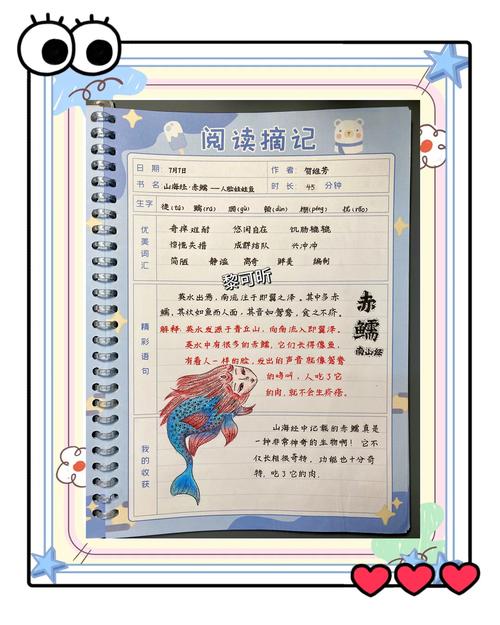 阅读摘记
日期 7月7日 作者 贺维芳
书名 山海经·赤鱬——人脸娃娃鱼 时长 45 分钟
生字 徒(tú) 鱬(rú)
优美词汇 奇痒难耐 悠闲自在 饥肠辘辘
惊慌失措 成群结队 兴冲冲
简陋 静谧 离奇 鲜美 编制
黎可昕
精彩语句 英水出焉，南流注于即翼之泽。其中多赤
鱬，其状如鱼而人面，其音如鸳鸯，食之不疥。
赤鱬
南山经
解释：英水发源于青丘山，向南流入即翼泽。
英水中有很多的赤鱬，它们长得像鱼，
有着人一样的脸，发出的声音就像鸳鸯
的鸣叫，人吃了它
的肉，就不会生疥疮。
我的收获 山海经中记载的赤鱬真是
一种非常神奇的生物啊！它不
仅长相很奇特，功能也十分奇
特，吃了它的肉，